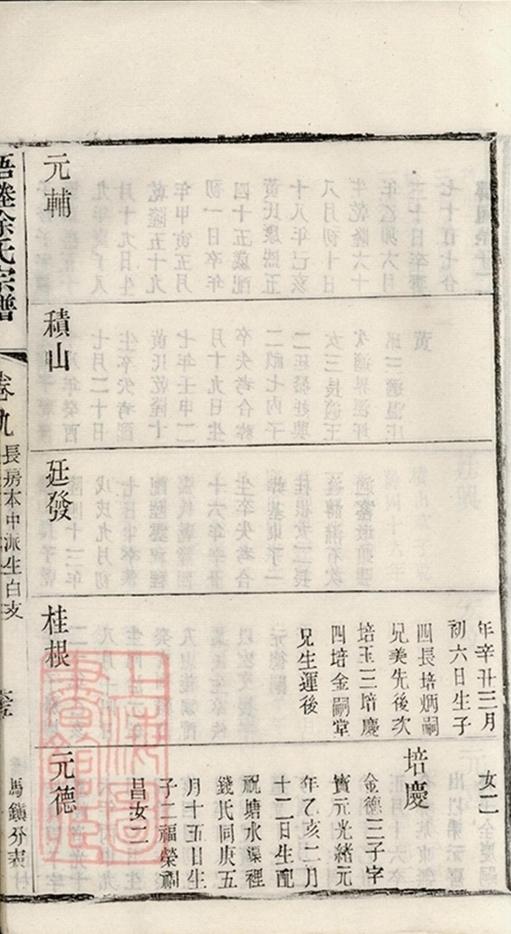 元輔
積山
廷發
年辛丑三月
初六日生子
四長培炳嗣
兄美先後次
培玉三培慶
四培金嗣堂
兄生運後
桂根
女二
培慶
金德三子字
寶元光緒元
年乙亥二月
十二日生配
祝塘水渠裡
錢氏同庚五
月十五日生
子二福榮福
昌女二
元德
梧塍徐氏宗譜
卷九
長房本中派生白支
馬鎮分表